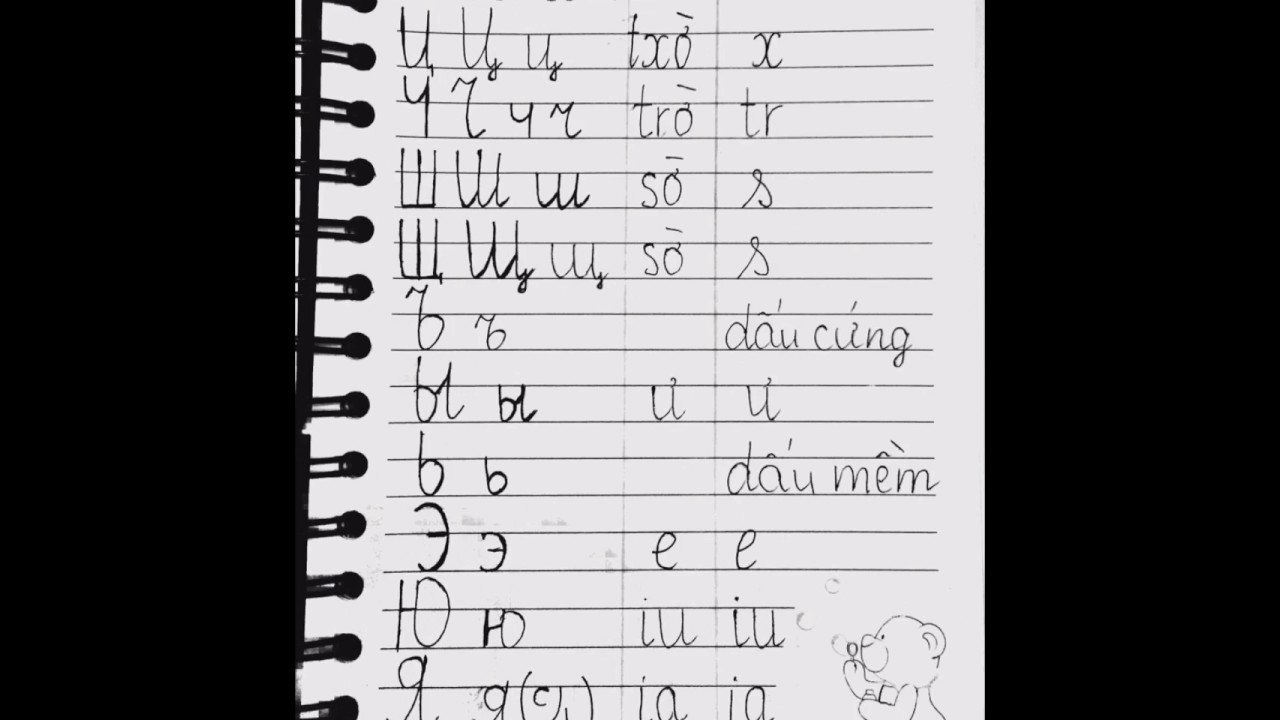 Ц Ц ц txờ x
Ч Ч ч ч trờ tr
Ш Ш ш sờ s
Щ Щ щ sờ s
Ъ ъ dấu cứng
Ы ы ư ư
Ь ь dấu mềm
Э э e e
Ю ю iu iu
Я я ia ia